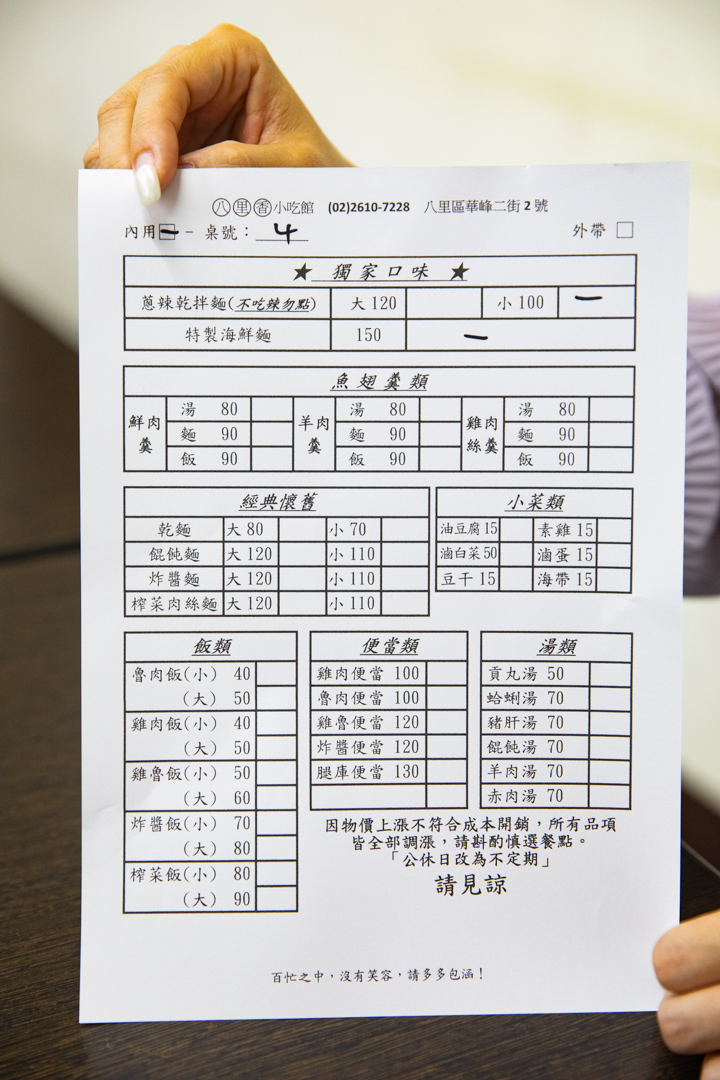 八里香小吃館 (02)2610-7228 八里區華峰二街2號
內用 一 - 桌號：4 外帶 □
★ 獨家口味 ★
蔥辣乾拌麵(不吃辣勿點) 大 120 小 100 一
特製海鮮麵 150 一
魚翅羹類
鮮肉羹 湯 80 羊肉羹 湯 80 雞肉絲羹 湯 80
麵 90 麵 90 麵 90
飯 90 飯 90 飯 90
經典懷舊
乾麵 大 80 小 70
餛飩麵 大 120 小 110
炸醬麵 大 120 小 110
榨菜肉絲麵 大 120 小 110
小菜類
油豆腐 15 素雞 15
滷白菜 50 滷蛋 15
豆干 15 海帶 15
飯類
魯肉飯(小) 40
(大) 50
雞肉飯(小) 40
(大) 50
雞魯飯(小) 50
(大) 60
炸醬飯(小) 70
(大) 80
榨菜飯(小) 80
(大) 90
便當類
雞肉便當 100
魯肉便當 100
雞魯便當 120
炸醬便當 120
腿庫便當 130
湯類
貢丸湯 50
蛤蜊湯 70
豬肝湯 70
餛飩湯 70
羊肉湯 70
赤肉湯 70
因物價上漲不符合成本開銷，所有品項
皆全部調漲，請斟酌慎選餐點。
「公休日改為不定期」
請見諒
百忙之中，沒有笑容，請多多包涵！